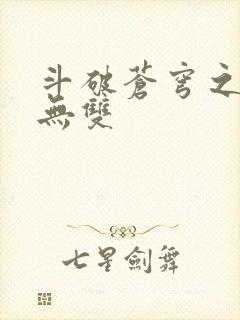 斗破蒼穹之
無雙
七星劍舞